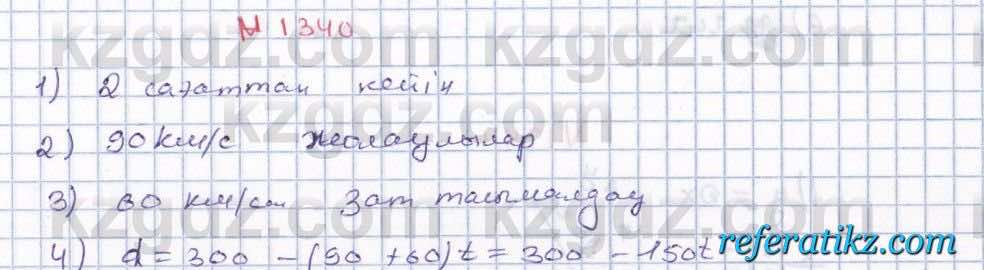 № 1340
1) 2 сағаттан кейін
2) 90 км/с жолаушылар
3) 60 км/саг Зат тасымалдау
4) d = 300 - (90 + 60)t = 300 - 150t
kzgdz.com kzgdz.com kzgdz.com
referatikz.com